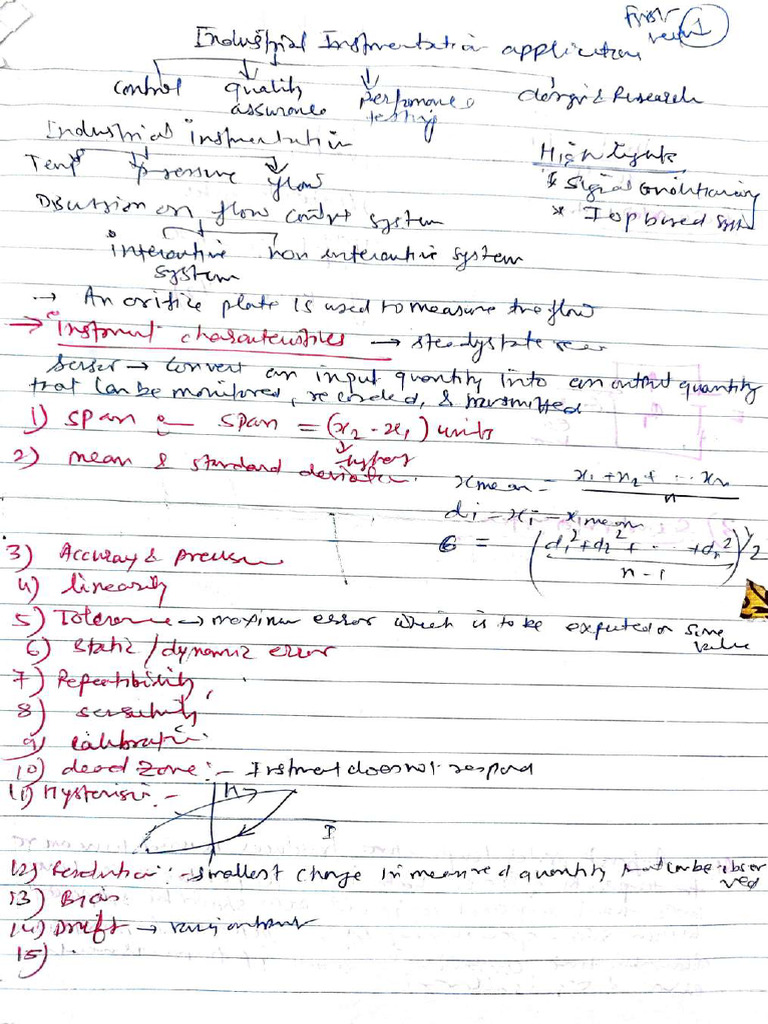 First
1
Industrial Instrumentation application
control quality assurance performance & testing design & Research
Industrial instrumentation
Temp pressure flow
High lights
* Signal Conditioning
* I op based syst
Discussion on flow control system
interactive system non interactive system
→ An orifice plate is used to measure the flow
→ Instrument characteristics → steady state
Sensor → Convert an input quantity into an output quantity
that can be monitored, recorded, & transmitted
1) span span = (x₂ - x₁) units
2) mean & standard deviation.
x mean = x₁ + x₂ + ... xn / n
di = xi - x mean
σ = (d₁² + d₂² + ... + dn² / n-1)^1/2
3) Accuracy & precision
4) linearity
5) Tolerance → maximum error which is to be expected on some value
6) static / dynamic error
7) Repeatability
8) sensitivity
9) calibration
10) dead zone :- Instrument does not respond
11) Hysterisis :-
H
I
12) Resolution :- smallest change in measured quantity that can be observed
13) Bias
14) Drift →
15)